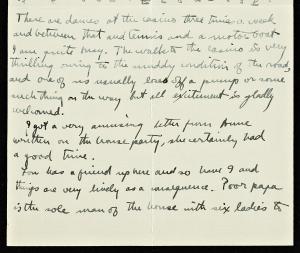 There are dances at the casino three times a week
and between that and tennis and a motor boat
I am quite busy. The walk to the casino is very
thrilling owing to the muddy condition of the road,
and one of us usually loses off a pump or some
such thing on the way but all excitement is gladly
welcomed.
I got a very amusing letter from Anne
written on the house party, she certainly had
a good time.
has a friend up here and so have I and
things are very lively as a consequence. Poor papa
is the sole man of the house with six ladies to